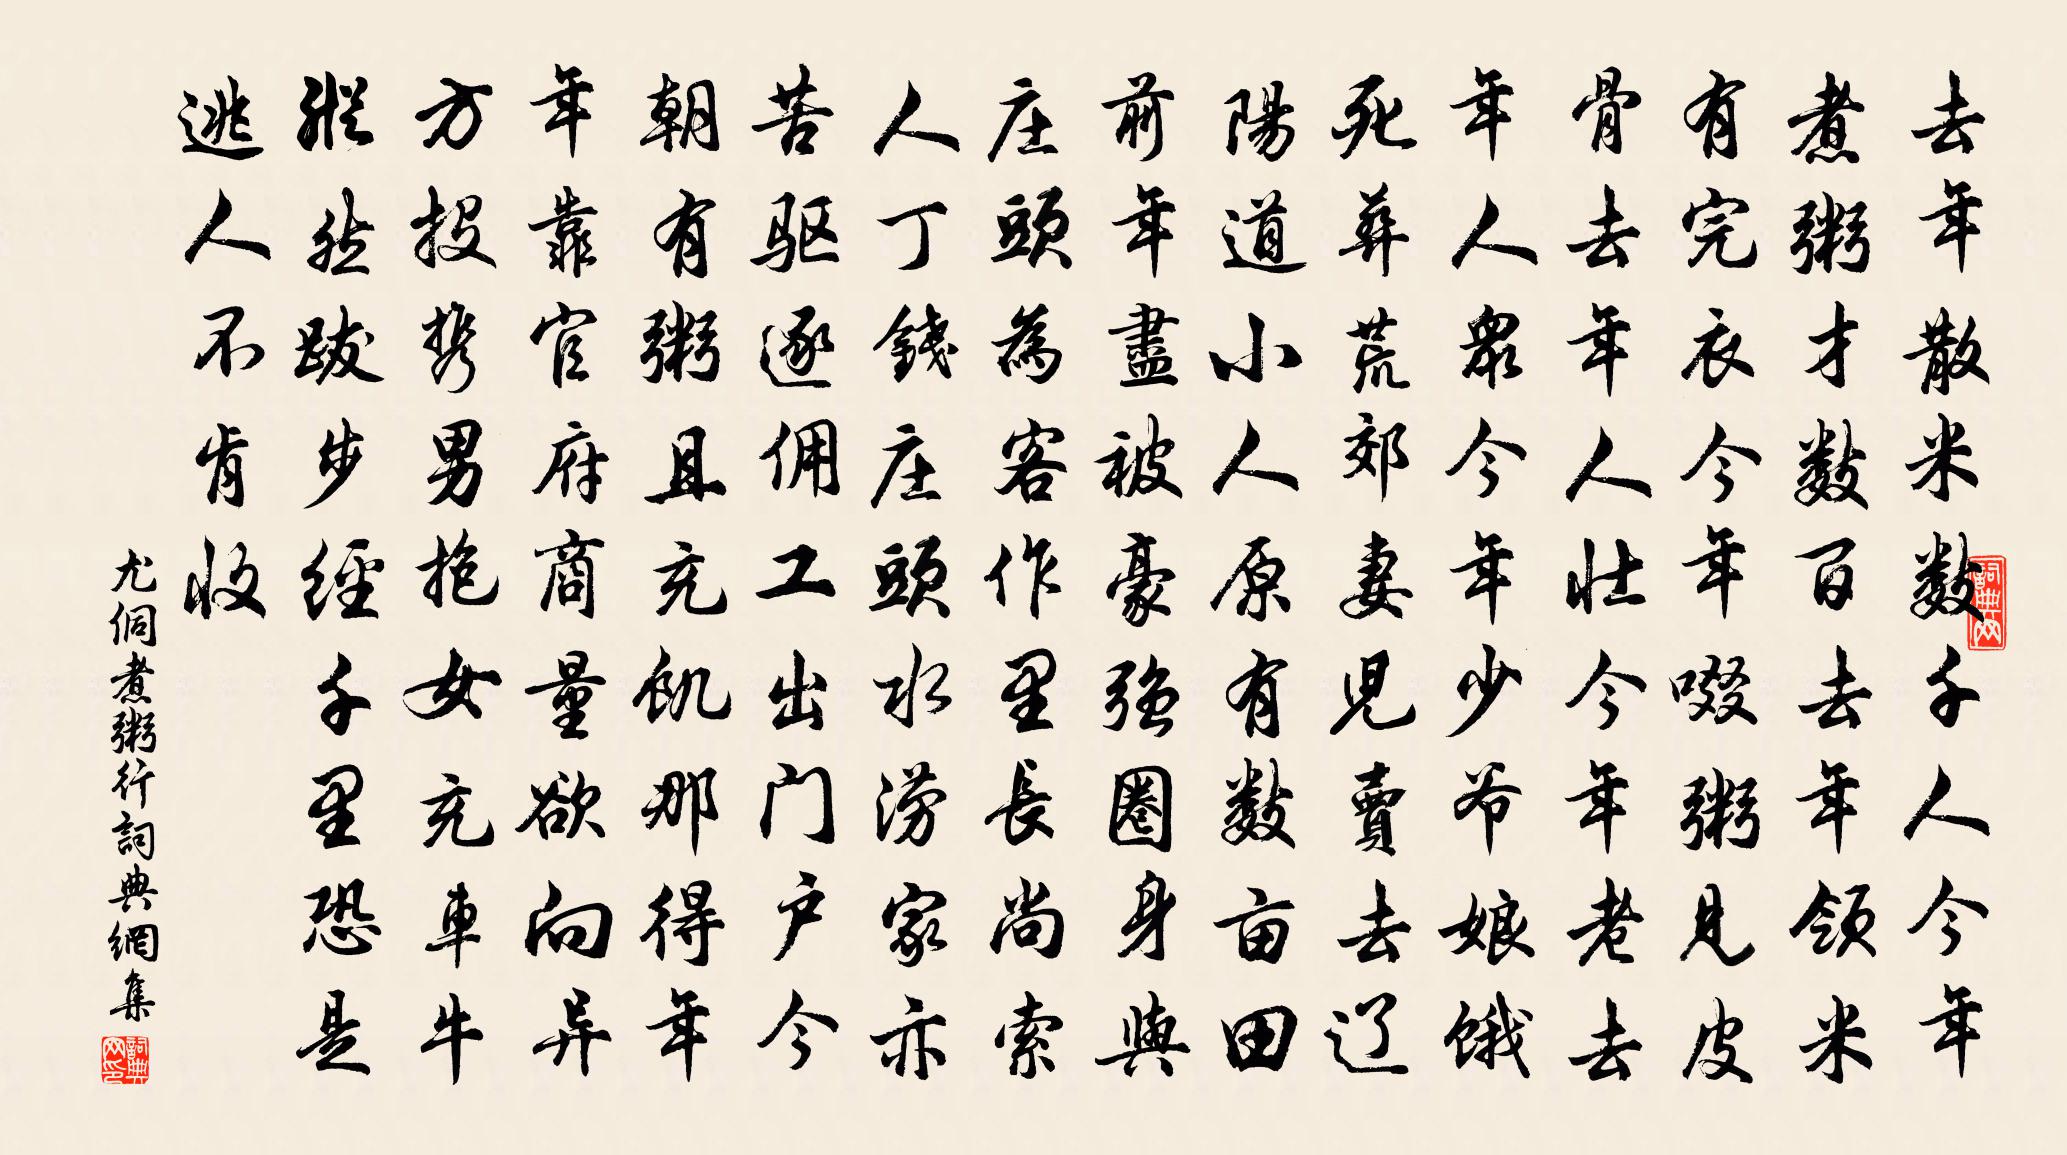 去年散米数千人今年
煮粥才数百去年領米
有完衣今年啜粥見皮
骨去年人壮今年老去
年人衆今年少爷娘饿
死葬荒郊妻児賣去辽
陽道小人原有数亩田
前年盡被豪强圈身與
庄頭為客作里長尚索
人丁錢庄頭水澇家亦
苦驱逐佣工出门户今
朝有粥且充飢那得年
年靠官府商量欲向异
方投携男抱女充車牛
縱然跋步經千里恐是
逃人不肯收
尤侗煮粥行詞典網集
詞典网
詞典网印